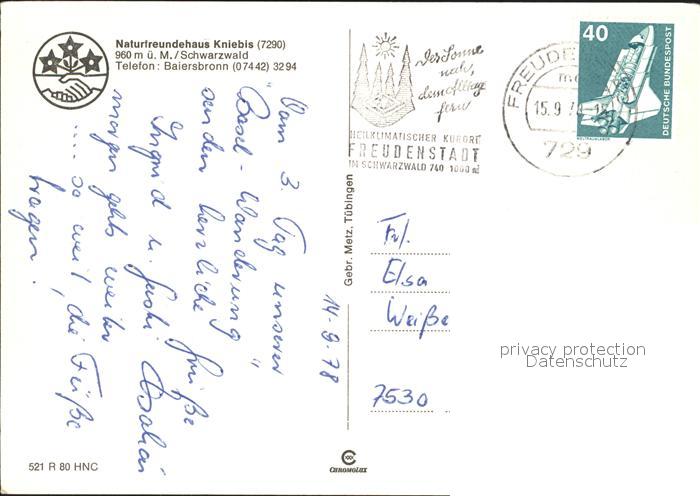 Naturfreundehaus Kniebis (7290)
960 m ü. M./Schwarzwald
Telefon: Baiersbronn (07442) 3294
14-9-78
Vom 3. Tag unserer
"Basel-Wanderung"
senden herzliche Grüße
Ingrid u.
morgen gehts weiter
.... so weit, die Füße
tragen.
521 R 80 HNC
Gebr. Metz, Tübingen
CHROMOLUX
Der Sonne
nah,
dem Alltag
fern
HEILKLIMATISCHER KURORT
FREUDENSTADT
IM SCHWARZWALD 740-1000 m
FREUDE
15.9.7
729
40
DEUTSCHE BUNDESPOST
WELTRAUMLABOR
Frl.
Elsa
Weiße
7530
privacy protection
Datenschutz